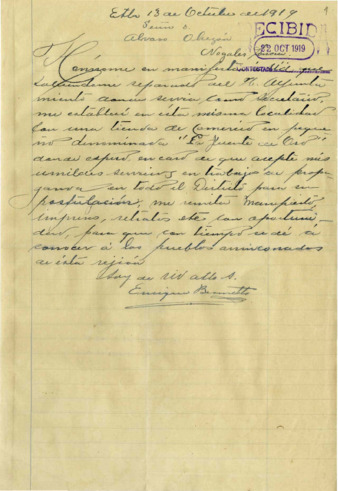 Etla 13 de Octubre de 1919
1
Señor
Alvaro Obregón
RECIBID
22 OCT 1919
CONTESTADA
Nogales, Sonora.
Hónrome en manifestar á Ud. que
habiéndome separado del H. Ayunta
miento donde servía como Secretario,
me establecí en esta misma localidad
con una tienda de Comercio en peque
ño denominada "La Fuente de Oro"
donde espero en caso de que acepte mis
umildes servicios en trabajos de propa
ganda en todo el Distrito para su
postulación, me remita Manifiesto,
impresos, retratos etc con oportuni-
dad, para que con tiempo se dé á
conocer á los pueblos
de ésta rejión.
Soy de Ud atto S.
Enrique